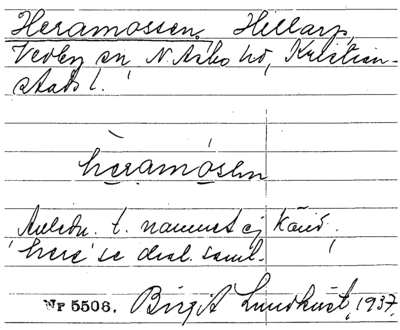 Heramossen, Hillarp,
Vedby sn N. Åsbo hd, Kristian-
stads l.
hèramósen
Anledn. t. namnet ej känd.
'here' se dial. saml.
Nr 5508. Birgit Lundkvist, 1937.